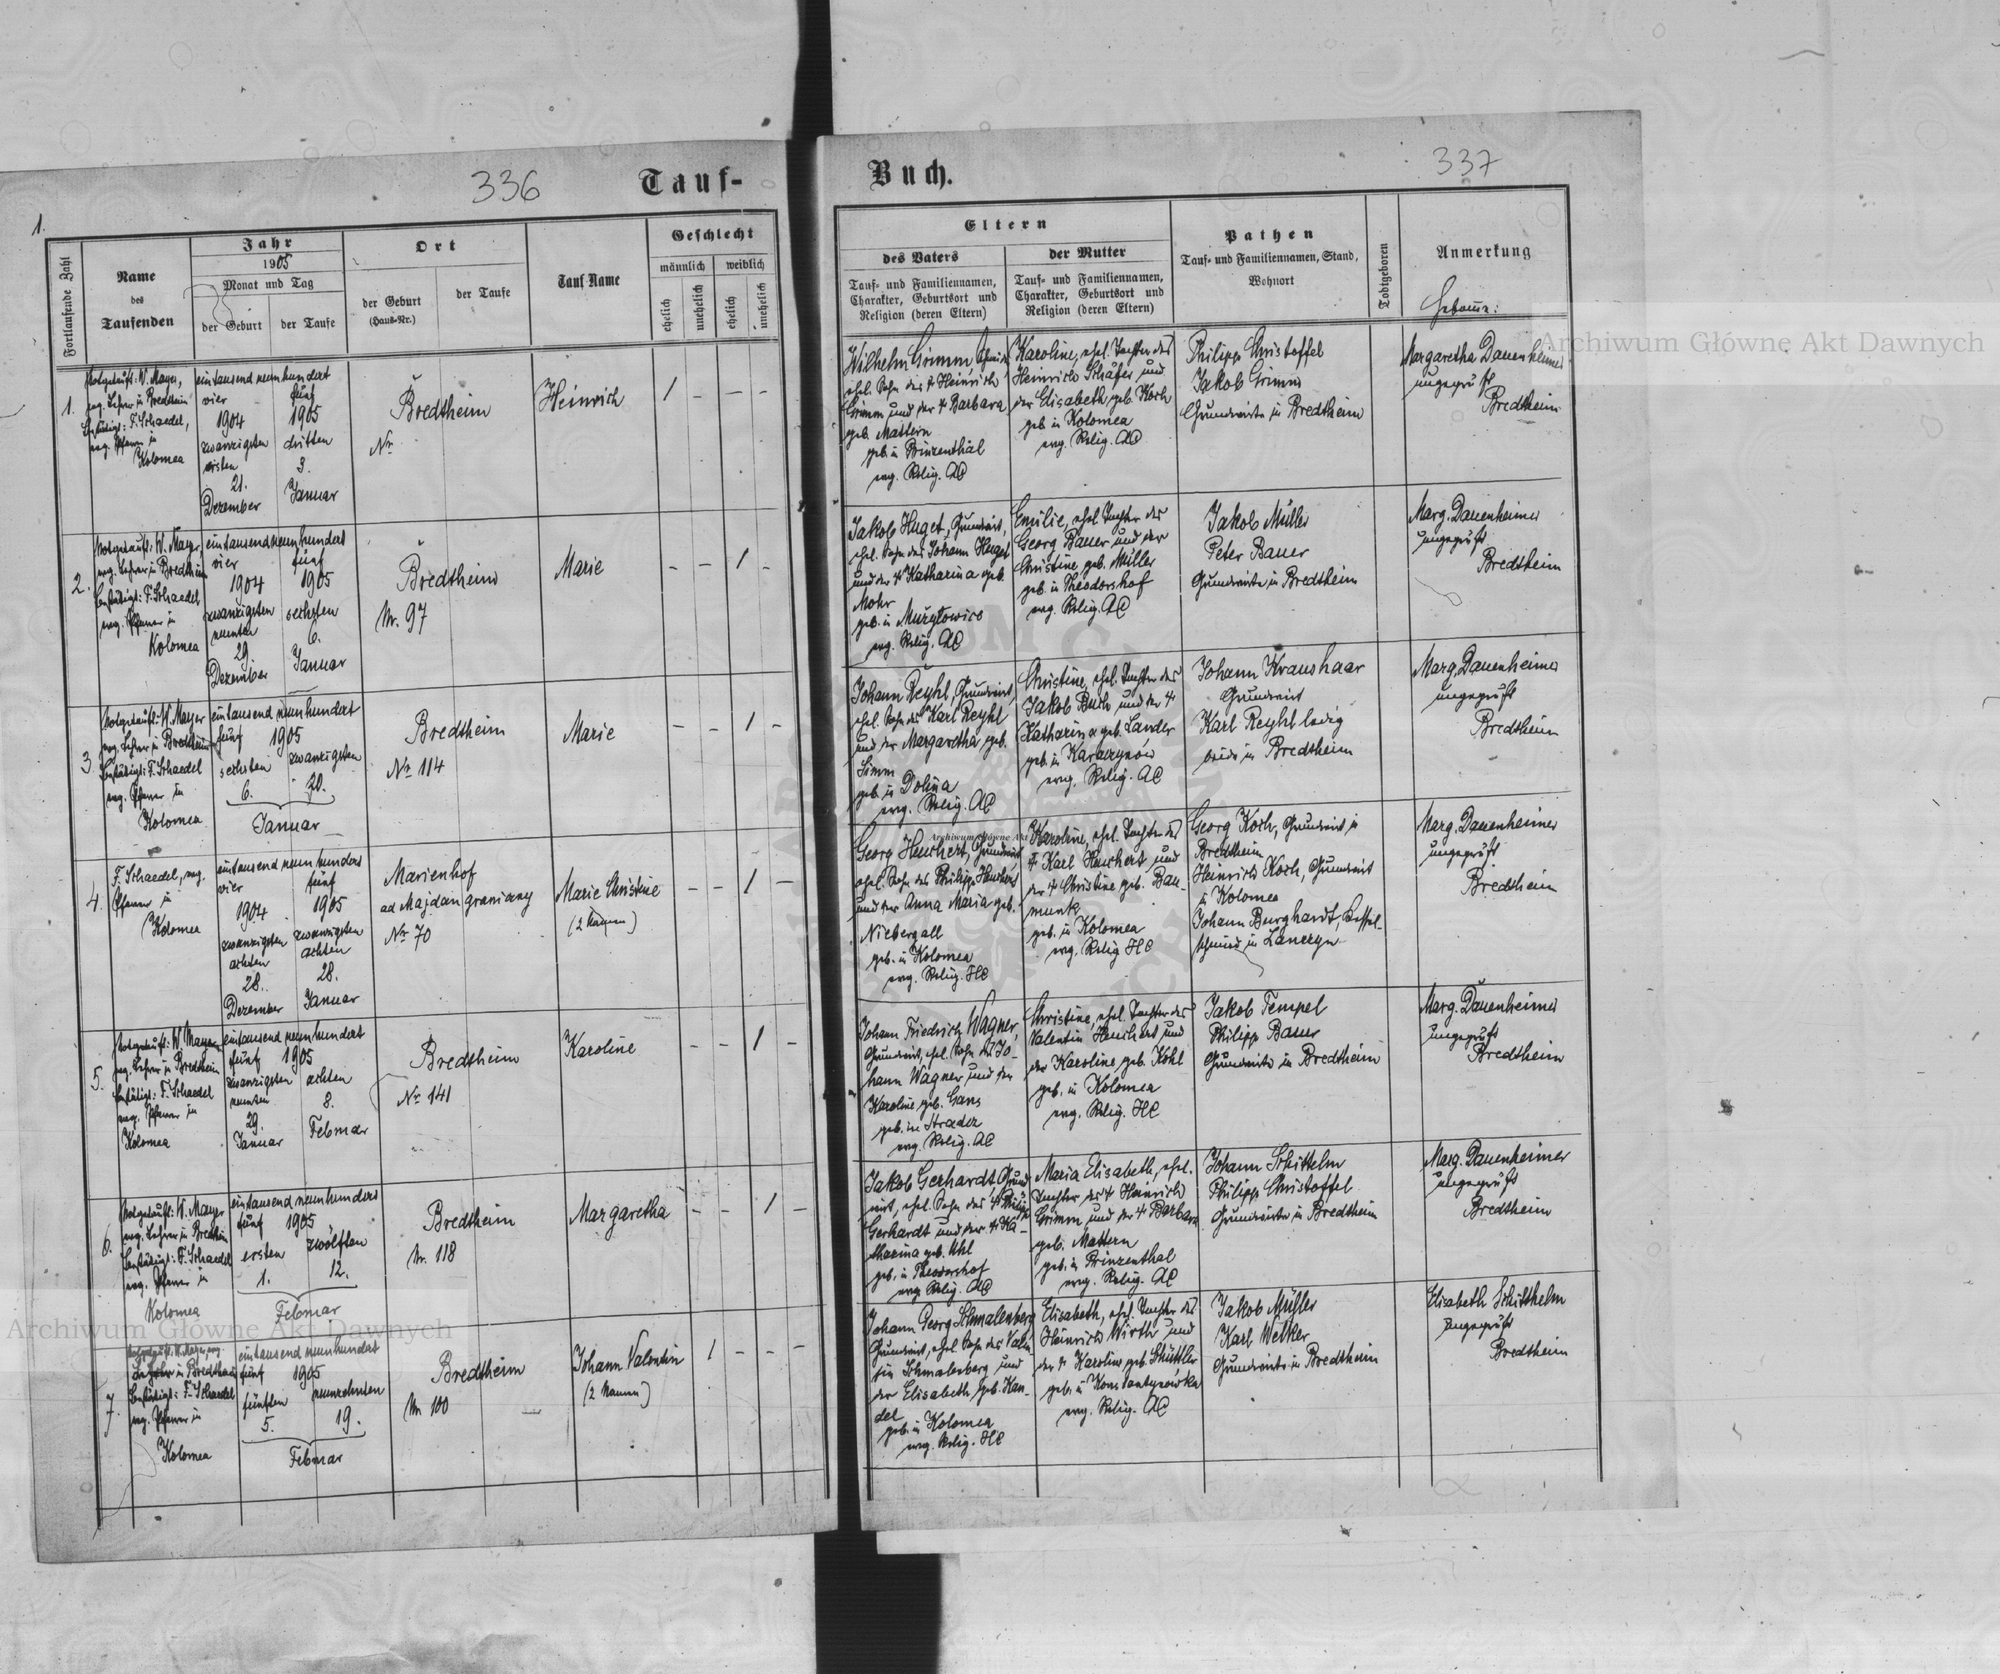 336
Tauf-
Buch.
337
1.
Fortlaufende Zahl
Name
des
Taufenden
Jahr
1905
Monat und Tag
der Geburt
der Taufe
Ort
der Geburt
(Haus-Nr.)
der Taufe
Tauf-Name
Geschlecht
männlich
weiblich
ehelich
unehelich
ehelich
unehelich
Eltern
des Vaters
Tauf- und Familiennamen,
Charakter, Geburtsort und
Religion (deren Eltern)
der Mutter
Tauf- und Familiennamen,
Charakter, Geburtsort und
Religion (deren Eltern)
Pathen
Tauf- und Familiennamen, Stand,
Wohnort
Todtgeboren
Anmerkung
Hebamme:
1.
Notgetauft: W. Mayer,
evg. Lehrer in Bredtheim
bestätigt: F. Schaedel,
evg. Pfarrer in
Kolomea
eintausend neunhundert
vier
1904
zwanzigsten
ersten
21.
Dezember
fünf
1905
dritten
3.
Januar
Bredtheim
Nr.
Heinrich
1 - - -
Wilhelm Grimm,
ehel. Sohn des † Heinrich
Grimm und der † Barbara
geb. Mattern
geb. in Prinzenthal
evg. Relig. AC
Karoline, ehel. Tochter des
Heinrich Schäfer und
der Elisabeth, geb. Koch
geb. in Kolomea
evg. Relig. AC
Philipp Christoffel
Jakob Grimm
Grundwirte in Bredtheim
Margaretha Dauenheimer
ungeprüft
Bredtheim
2.
Notgetauft: W. Mayer
evg. Lehrer in Bredtheim
bestätigt: F. Schaedel
evg. Pfarrer in
Kolomea
eintausend neunhundert
vier
1904
zwanzigsten
neunten
29
Dezember
fünf
1905
sechsten
6.
Januar
Bredtheim
Nr. 97
Marie
- - 1 -
Jakob Huget, Grundwirt,
ehel. Sohn des Johann Huget
und der † Katharina geb.
Mohr
geb. in Muzyłowice
evg. Relig. AC
Emilie, ehel. Tochter des
Georg Bauer und der
Christine geb. Müller
geb. in Theodorshof
evg. Relig. AC
Jakob Müller
Peter Bauer
Grundwirte in Bredtheim
Marg. Dauenheimer
ungeprüft
Bredtheim
3.
Notgetauft: W. Mayer
evg. Lehrer in Bredtheim
bestätigt: F. Schaedel
evg. Pfarrer in
Kolomea
eintausend neunhundert
fünf 1905
sechsten
6.
zwanzigsten
20.
Januar
Bredtheim
Nr. 114
Marie
- - 1 -
Johann Reyhl, Grundwirt,
ehel. Sohn des Karl Reyhl
und der Margaretha geb.
Simm
geb. in Dolina
evg. Relig. AC
Christine, ehel. Tochter des
Jakob Buch und der †
Katharina geb. Lander
geb. in Karaczynów
evg. Relig. AC
Johann Kraushaar
Grundwirt
Karl Reyhl ledig
beide in Bredtheim
Marg. Dauenheimer
ungeprüft
Bredtheim
4.
F. Schaedel, evg.
Pfarrer in
Kolomea
eintausend neunhundert
vier
1904
zwanzigsten
achten
28.
Dezember
fünf
1905
zwanzigsten
achten
28.
Januar
Marienhof
ad Majdan graniczny
Nr. 70
Marie Christine
(2 Namen)
- - 1 -
Georg Heuchert, Grundwirt,
ehel. Sohn des Philipp Heuchert
und der Anna Maria geb.
Niebergall
geb. in Kolomea
evg. Relig. HC
Karoline, ehel. Tochter des
† Karl Heuchert und
der † Christine geb. Bau-
munk
geb. in Kolomea
evg. Relig HC
Georg Koch, Grundwirt in
Bredtheim
Heinrich Koch, Grundwirt
in Kolomea
Johann Burghardt, Kessel-
schmied in Lanczyn
Marg. Dauenheimer
ungeprüft
Bredtheim
5.
Notgetauft: W. Mayer
evg. Lehrer in Bredtheim
bestätigt: F. Schaedel
evg. Pfarrer in
Kolomea
eintausend neunhundert
fünf 1905
zwanzigsten
neunten
29.
Januar
achten
8.
Februar
Bredtheim
Nr. 141
Karoline
- - 1 -
Johann Friedrich Wagner,
Grundwirt, ehel. Sohn des Jo-
hann Wagner und der
Karoline geb. Gans
geb. in Stradcz
evg. Relig. AC
Christine, ehel. Tochter des
Valentin Heuchert und
der Karoline, geb. Köhl
geb. in Kolomea
evg. Relig. HC
Jakob Tempel
Philipp Bauer
Grundwirte in Bredtheim
Marg. Dauenheimer
ungeprüft
Bredtheim
6.
Notgetauft: W. Mayer
evg. Lehrer in Bredtheim
bestätigt: F. Schaedel
evg. Pfarrer in
Kolomea
eintausend neunhundert
fünf 1905
ersten
1.
zwölften
12.
Februar
Bredtheim
Nr. 118
Margaretha
- - 1 -
Jakob Gerhardt, Grund-
wirt, ehel. Sohn des † Philipp
Gerhardt und der † Ka-
tharina geb. Uhl
geb. in Theodorshof
evg. Relig. AC
Maria Elisabeth, ehel.
Tochter des † Heinrich
Grimm und der † Barbara
geb. Mattern
geb. in Prinzenthal
evg. Relig. AC
Johann Schittelm
Philipp Christoffel
Grundwirte in Bredtheim
Marg. Dauenheimer
ungeprüft
Bredtheim
7.
Notgetauft: W. Mayer, evg.
Lehrer in Bredtheim
bestätigt: F. Schaedel
evg. Pfarrer in
Kolomea
eintausend neunhundert
fünf 1905
fünften
5.
neunzehnten
19.
Februar
Bredtheim
Nr. 100
Johann Valentin
(2 Namen)
1 - - -
Johann Georg Schmalenberg
Grundwirt, ehel. Sohn des Valen-
tin Schmalenberg und
der Elisabeth geb. Kan-
del
geb. in Kolomea
evg. Relig. HC
Elisabeth, ehel. Tochter des
Heinrich Wirth und
der † Karoline geb. Schüttler
geb. in Konstantynówka
evg. Relig. AC
Jakob Müller
Karl Welker
Grundwirte in Bredtheim
Elisabeth Schitthelm
ungeprüft
Bredtheim
Archiwum Główne Akt Dawnych
Archiwum Główne Akt Dawnych